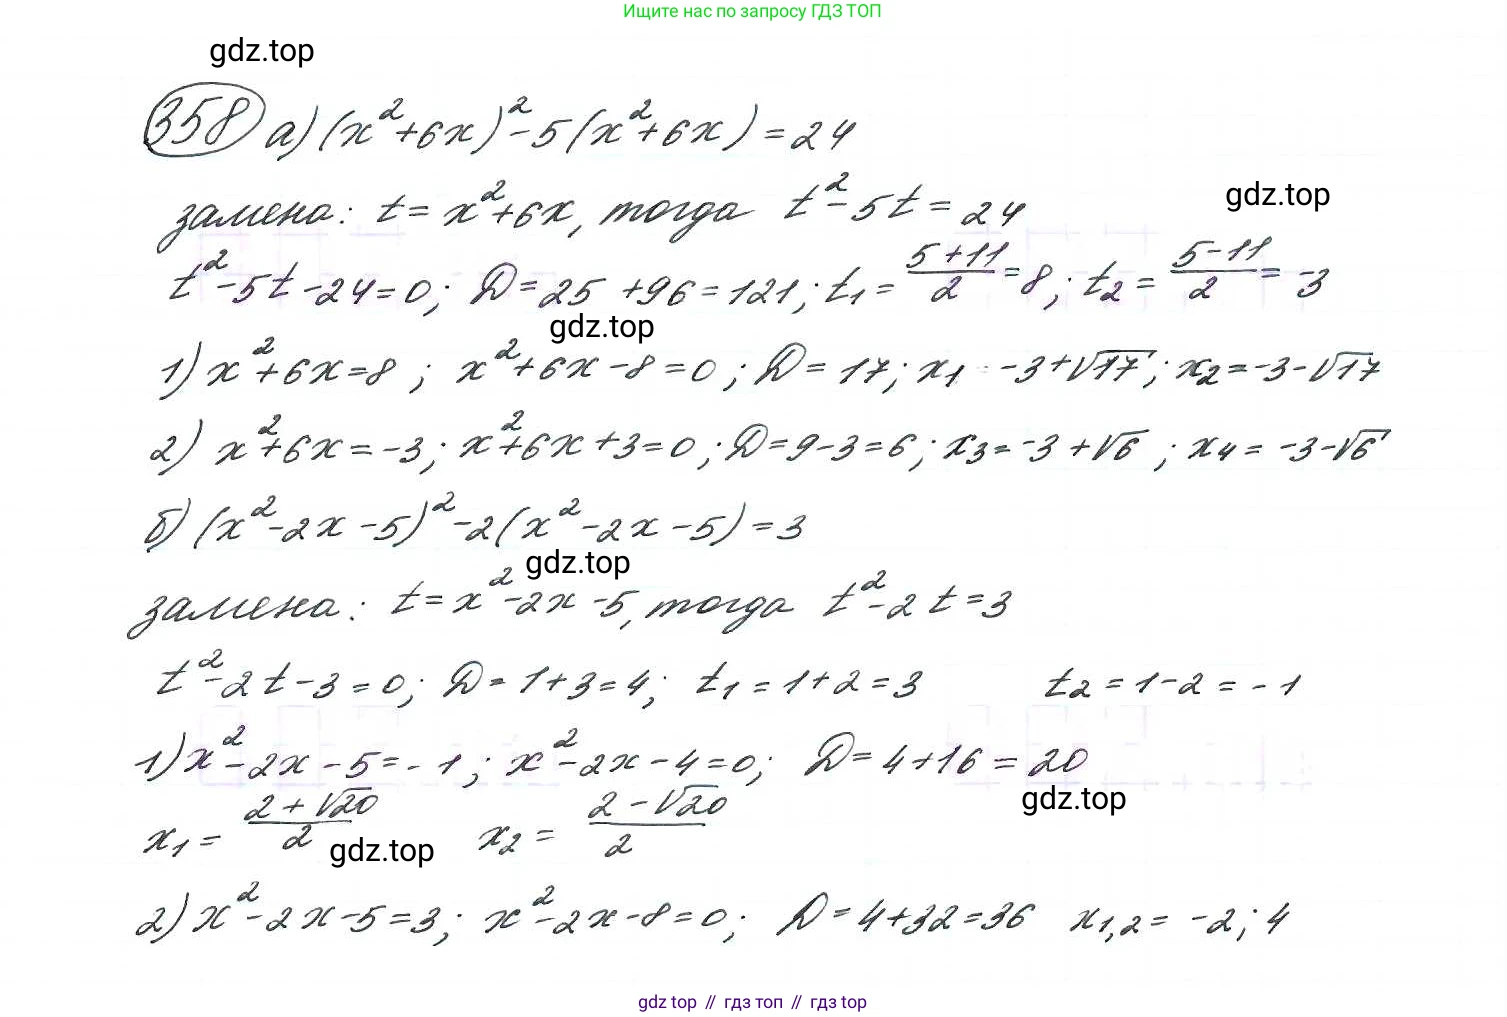 Ищите нас по запросу ГДЗ ТОП
gdz.top
358 а) (x²+6x)²-5(x²+6x)=24
замена: t=x²+6x, тогда t²-5t=24
gdz.top
t²-5t-24=0; D=25+96=121; t₁=(5+11)/2=8; t₂=(5-11)/2=-3
gdz.top
1) x²+6x=8; x²+6x-8=0; D=17; x₁ -3+√17; x₂=-3-√17
2) x²+6x=-3; x²+6x+3=0; D=9-3=6; x₃=-3+√6; x₄=-3-√6
б) (x²-2x-5)²-2(x²-2x-5)=3
gdz.top
замена: t=x²-2x-5, тогда t²-2t=3
t²-2t-3=0; D=1+3=4; t₁=1+2=3 t₂=1-2=-1
1) x²-2x-5=-1; x²-2x-4=0; D=4+16=20
gdz.top
x₁=(2+√20)/2 x₂=(2-√20)/2
gdz.top
2) x²-2x-5=3; x²-2x-8=0; D=4+32=36 x₁,₂=-2; 4
gdz top // гдз топ // gdz top